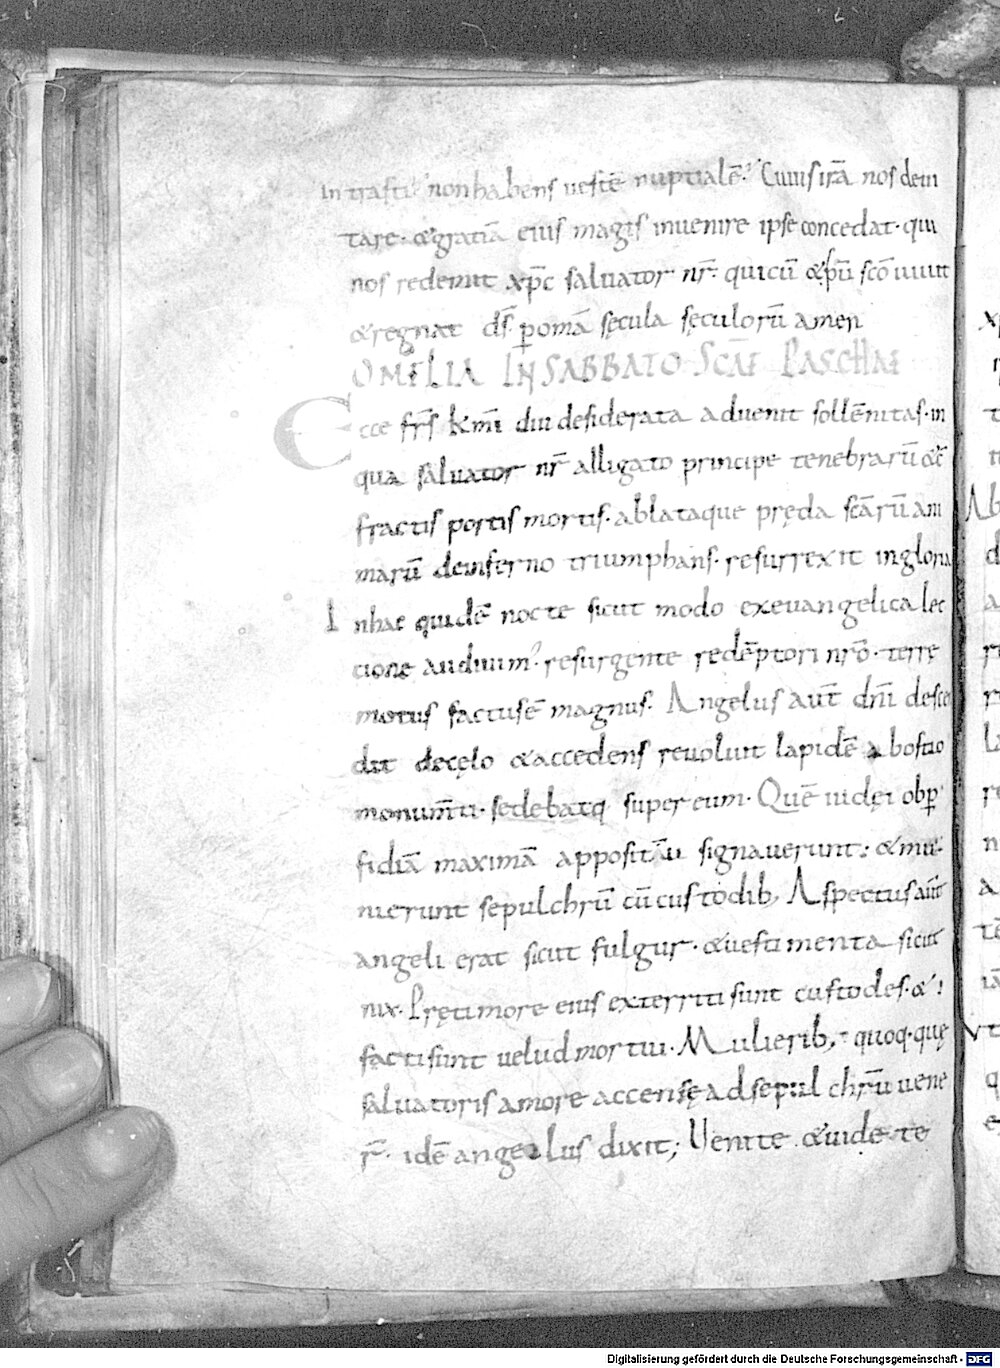 intrasti non habens uestē nuptialē? Cuius irā nos deui
tare· & gratiā eius magis inuenire ipse concedat· qui
nos redemit xp̄c saluator nr̄· qui cū & sp̄u sc̄o uiuit
& regnat ds̄ p omā sęcula sęculorū amen
OMELIA IN SABBATO SCAE PASCHAE
Ecce fr̄s km̄i diu desiderata aduenit sollēnitas· in
qua saluator nr̄ alligato principe tenebrarū & ef
fractis portis mortis· ablataque pręda sc̄arū ani
marū de inferno triumphans· resurrexit in gloria
In hac quidē nocte sicut modo ex euangelica lec
tione audiuim᾽· resurgente redēptori nr̄o· terrę
motus factus ē magnus· Angelus aut̄ dn̄i descen
dit de cęlo & accedens reuoluit lapidē ab ostio
monum̄ti· sedebatq super eum· Quē iudęi ob p
fidiā maximā appositā signauerunt· & mu
nierunt sepulchrū cū custodib; Aspectus aut̄
angeli erat sicut fulgur· & uestimenta sicut
nix· Prę timore eius exterriti sunt custodes· &
facti sunt uelud mortui· Mulierib; quoq· quę
saluatoris amore accensę ad sepulchrū uene
r̄· idē angelus dixit; Uenite & uidete
Digitalisierung gefördert durch die Deutsche Forschungsgemeinschaft - DFG